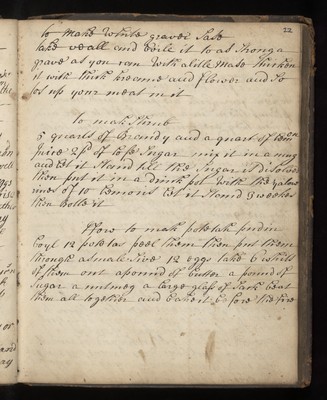 22
to make white gravei Sase
take veall and boile it to as Stronga
grave as you can With alitle Mase thicken
it with thick kreame and flower and So
sos up your meat in it
To mak Shrub
5 quarts of Brandy and a quart of lemon
Juice 2pd of lofe Sugar mix it in a mug
and let it Stand till the Sugar is disolved
then put it in a drink pot With the yalow
rines of 10 lemons let it Stand 3 weekes
then botle it
How to mak potetah pudin
boyl 12 potetas peel them then put them
through asmale Sive 12 eggs take 6 whits
of them out apound of butter a pound of
Sugar a nutmeg a large glass of Sack beat
them all together and